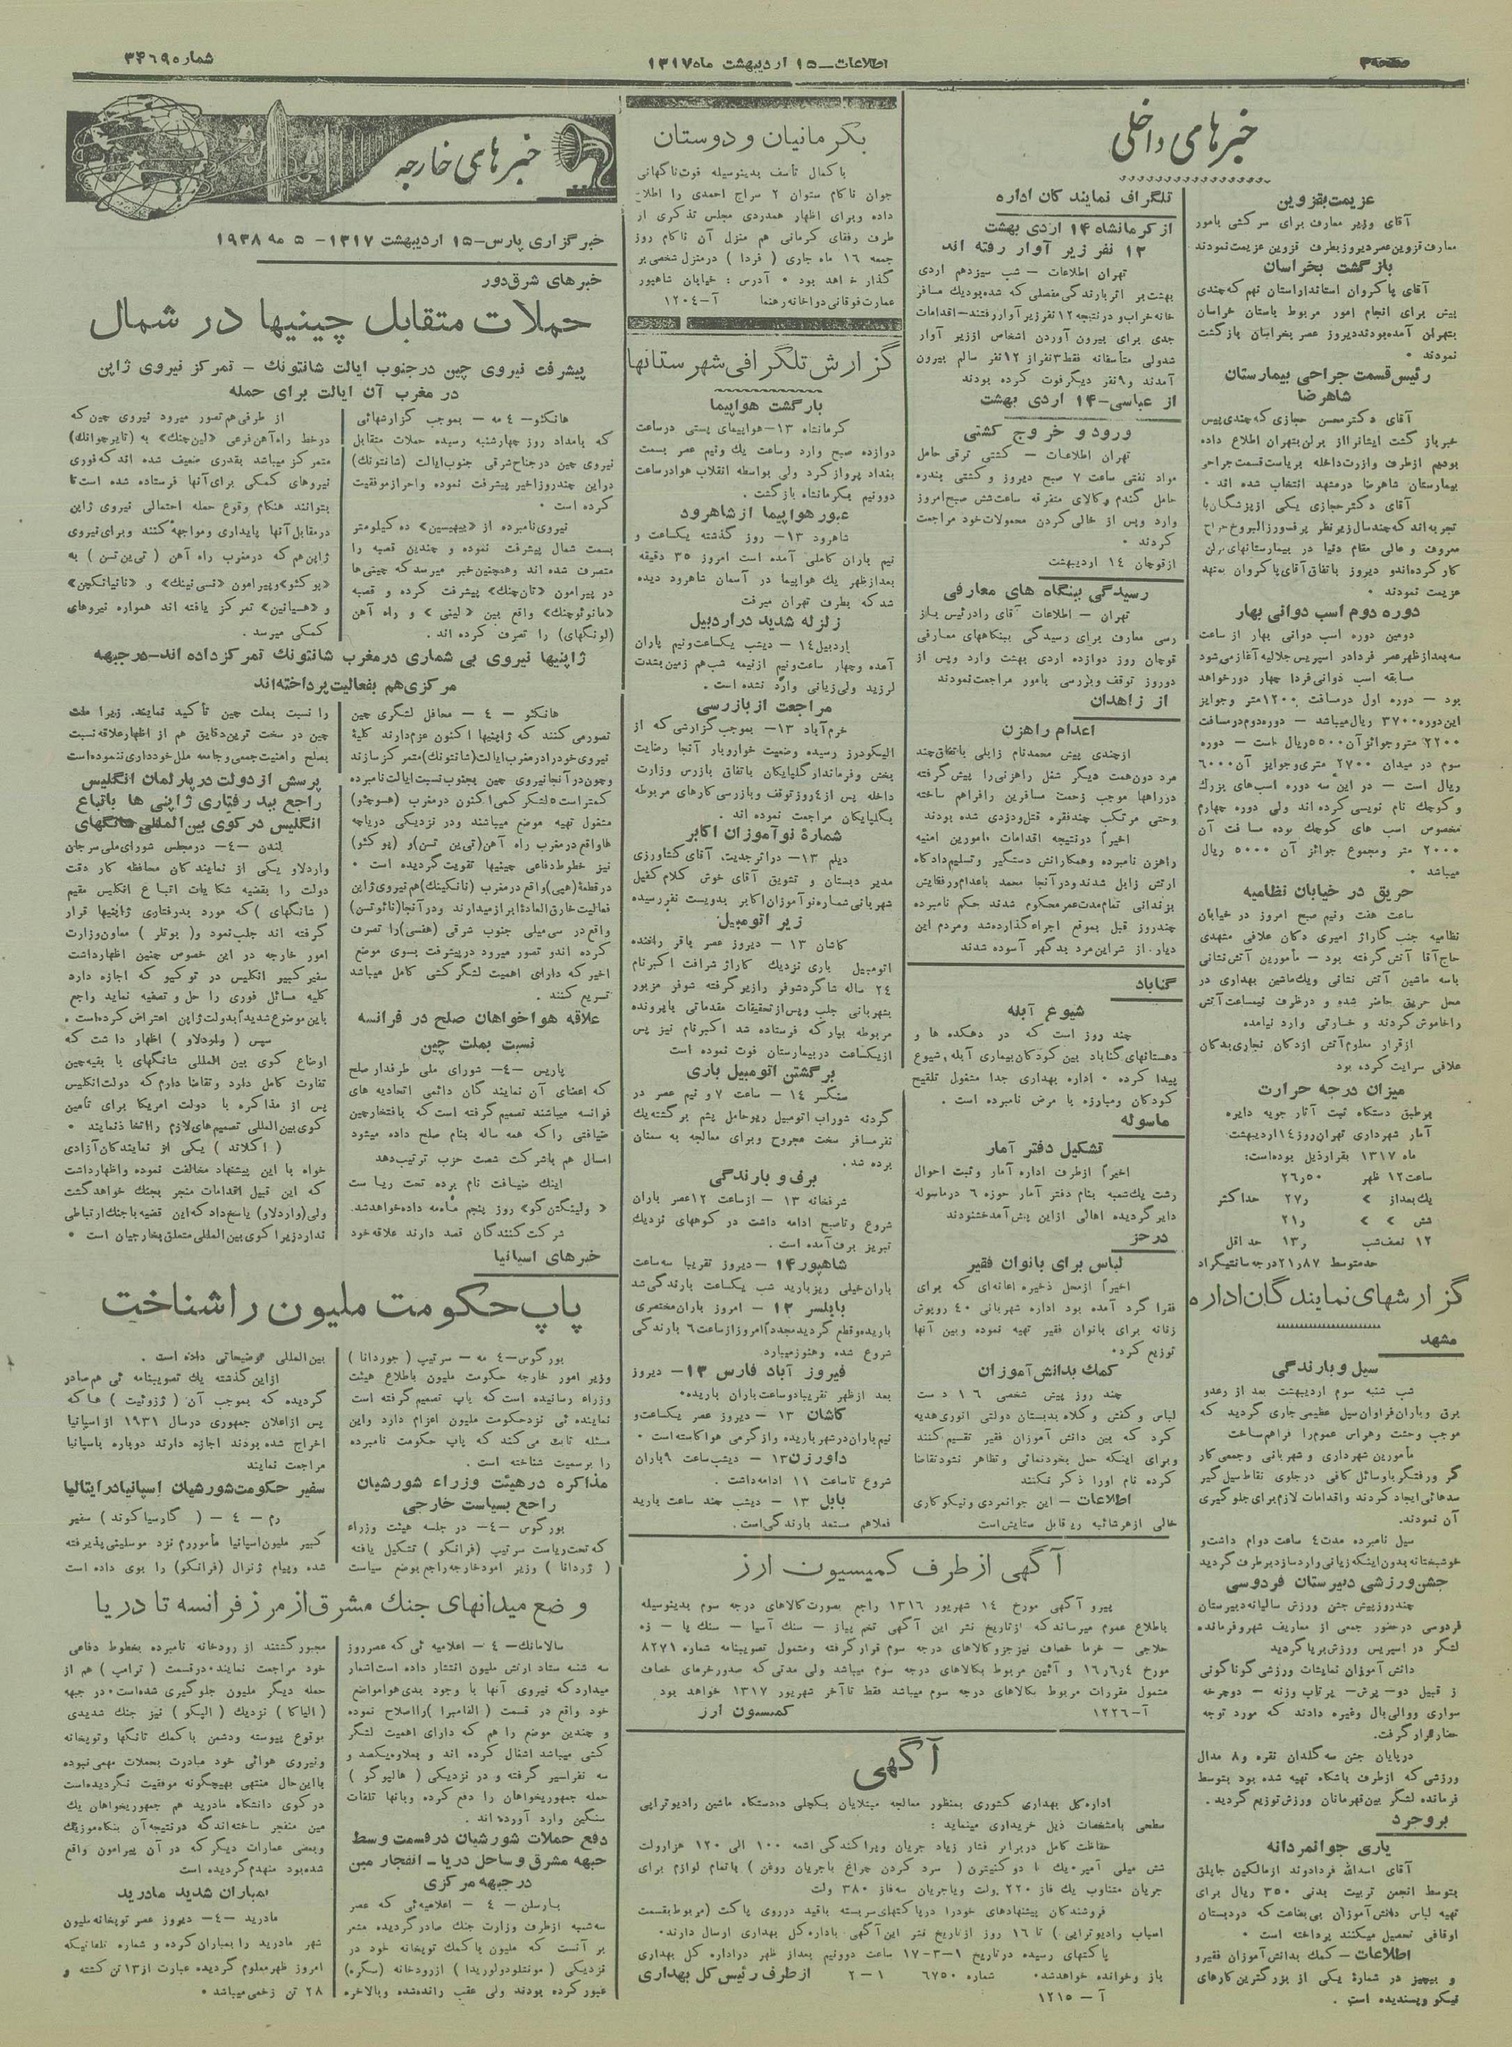 صفحه ۳
اطلاعات – ۱۵ اردیبهشت ماه ۱۳۱۷
شماره ۳۴۶۹
خبرهای داخلی
عزیمت بقزوین
آقای وزیر معارف برای سرکشی بامور
معارف قزوین عصر دیروز بطرف قزوین عزیمت نمودند
بازگشت بخراسان
آقای پاکروان استاندار استان نهم که چندی
پیش برای انجام امور مربوط باستان خراسان
بتهران آمده بودند دیروز عصر بخراسان بازگشت
نمودند .
رئیس قسمت جراحی بیمارستان
شاهرضا
آقای دکتر محسن حجازی که چندی پیس
خبر بازگشت ایشان را از برلن بتهران اطلاع داده
بودیم از طرف وزارت داخله بریاست قسمت جراحی
بیمارستان شاهرضا در مشهد انتخاب شده اند .
آقای دکتر حجازی یکی از پزشگان با
تجربه اند که چند سال زیر نظر پرفسور زائر بروخ جراح
معروف و عالی مقام دنیا در بیمارستانهای برلن
کار کرده اند و دیروز باتفاق آقای پاکروان بمشهد
عزیمت نمودند .
دوره دوم اسب دوانی بهار
دومین دوره اسب دوانی بهار از ساعت
سه بعد از ظهر عصر فردا در اسپریس جلالیه آغاز می شود
مسابقه اسب دوانی فردا چهار دور خواهد
بود – دوره اول در مسافت ۱۲۰۰ متر و جوایز
این دوره ۳۷۰۰ ریال میباشد – دوره دوم در مسافت
۲۲۰۰ متر و جوائز آن ۵۵۰۰ ریال است – دوره
سوم در میدان ۲۷۰۰ متری و جوایز آن ۶۰۰۰
ریال است – در این سه دوره اسب های بزرگ
و کوچک نام نویسی کرده اند ولی دوره چهارم
مخصوص اسب های کوچک بوده مسافت آن
۲۰۰۰ متر و مجموع جوائز آن ۵۰۰۰ ریال
میباشد .
حریق در خیابان نظامیه
ساعت هفت و نیم صبح امروز در خیابان
نظامیه جنب گاراژ امیری دکان علافی مشهدی
حاج آقا آتش گرفته بود – مأمورین آتش نشانی
باسه ماشین آتش نشانی و یک ماشین بهداری در
محل حریق حاضر شده و در ظرف نیمساعت آتش
را خاموش کردند و خسارتی وارد نیامده
از قرار معلوم آتش از دکان نجاری بدکان
علافی سرایت کرده بود
میزان درجه حرارت
برطبق دستگاه ثبت آثار جویه دایره
آمار شهرداری تهران روز ۱۴ اردیبهشت
ماه ۱۳۱۷ بقرار ذیل بوده است:
ساعت ۱۲ ظهر ۲۶٫۵۰
یک بعداز > ۲۷٫ حداکثر
شش > > ۲۱٫
۱۲ نصف شب ۱۳٫ حداقل
حد متوسط ۲۱٫۸۷ درجه سانتیگراد
گزارشهای نمایندگان اداره
مشهد
سیل و بارندگی
شب شنبه سوم اردیبهشت بعد از رعد و
برق و باران فراوان سیل عظیمی جاری گردید که
موجب وحشت و هراس عموم را فراهم ساخت
مأمورین شهرداری و شهربانی و جمعی کار
گر و رفتگر با وسائل کافی در جلوی نقاط سیل گیر
سدهائی ایجاد کردند و اقدامات لازم برای جلوگیری
آن نمودند.
سیل نامبرده مدت ۴ ساعت دوام داشت و
خوشبختانه بدون اینکه زیانی وارد سازد برطرف گردید
جشن ورزشی دبیرستان فردوسی
چند روز پیش جشن ورزش سالیانه دبیرستان
فردوسی در حضور جمعی از معاریف شهر و فرمانده
لشگر در اسپریس ورزش برپا گردید
دانش آموزان نمایشات ورزشی گوناگونی
ز قبیل دو– پرش– پرتاب وزنه – دوچرخه
سواری و والی بال وغیره دادند که مورد توجه
حضار قرار گرفت.
در پایان جشن سه گلدان نقره و ۸ مدال
ورزشی که از طرف باشگاه تهیه شده بود بتوسط
فرمانده لشگر بین قهرمانان ورزش توزیع گردید .
بروجرد
یاری جوانمردانه
آقای اسدالله فردادوند از مالکین جاپلق
بتوسط انجمن تربیت بدنی ۳۵۰ ریال برای
تهیه لباس دانش آموزان بی بضاعت که در دبستان
اوقافی تحصیل میکنند پرداخته است .
اطلاعات – کمک بدانش آموزان فقیر و
و بیچیز در شمارهٔ یکی از بزرگترین کارهای
نیکو و پسندیده است .
تلگراف نمایندگان اداره
از کرمانشاه ۱۴ اردی بهشت
۱۲ نفر زیر آوار رفته اند
تهران اطلاعات – شب سیزدهم اردی
بهشت بر اثر بارندگی مفصلی که شده بود یک مسافر
خانه خراب و در نتیجه ۱۲ نفر زیر آوار رفتند – اقدامات
جدی برای بیرون آوردن اشخاص از زیر آوار
شد ولی متأسفانه فقط ۳ نفر از ۱۲ نفر سالم بیرون
آمدند و ۹ نفر دیگر فوت کرده بودند
از عباسی – ۱۴ اردی بهشت
ورود و خروج کشتی
تهران اطلاعات – کشتی ترقی حامل
مواد نفتی ساعت ۷ صبح دیروز و کشتی پندره
حامل گندم و کالای متفرقه ساعت شش صبح امروز
وارد وپس از خالی کردن محمولات خود مراجعت
کردند .
از قوچان ۱۴ اردیبهشت
رسیدگی ببنگاه های معارفی
تهران – اطلاعات آقای راد رئیس باز
رسی معارف برای رسیدگی ببنگاههای معارفی
قوچان روز دوازده اردی بهشت وارد و پس از
دو روز توقف و بازرسی بامور مراجعت نمودند
از زاهدان
اعدام راهزن
از چندی پیش محمد نام زابلی باتفاق چند
مرد دون همت دیگر شغل راهزنی را پیش گرفته
در راهها موجب زحمت مسافرین را فراهم ساخته
وحتی مرتکب چند فقره قتل و دزدی شده بودند
اخیراً در نتیجه اقدامات مأمورین امنیه
راهزن نامبرده و همکارانش دستگیر و تسلیم دادگاه
ارتش زابل شدند و در آنجا محمد باعدام و رفقایش
بزندانی تمام مدت عمر محکوم شدند حکم نامبرده
چند روز قبل بموقع اجراء گذارده شد و مردم این
دیار از شر این مرد بدگهر آسوده شدند
گناباد
شیوع آبله
چند روز است که در دهکده ها و
دهستانهای گناباد بین کودکان بیماری آبله شیوع
پیدا کرده . اداره بهداری جداً مشغول تلقیح
کودکان و مبارزه با مرض نامبرده است .
ماسوله
تشکیل دفتر آمار
اخیراً از طرف اداره آمار و ثبت احوال
رشت یک شعبه بنام دفتر آمار حوزه ۶ در ماسوله
دایر گردیده اهالی از این پیش آمد خشنودند
درجز
لباس برای بانوان فقیر
اخیراً از محل ذخیره اعانه ای که برای
فقرا گرد آمده بود اداره شهربانی ۴۰ روپوش
زنانه برای بانوان فقیر تهیه نموده و بین آنها
توزیع کرد.
کمک بدانش آموزان
چند روز پیش شخصی ۱۶ دست
لباس و کفش و کلاه بدبستان دولتی انوری هدیه
کرد که بین دانش آموزان فقیر تقسیم کنند
وبرای اینکه حمل بخودنمائی و تظاهر نشود تقاضا
کرده نام او را ذکر نکنند
اطلاعات – این جوانمردی و نیکوکاری
خالی از هر شائبه ریا قابل ستایش است
بکرمانیان و دوستان
با کمال تأسف بدینوسیله فوت ناگهانی
جوان ناکام ستوان ۲ سراج احمدی را اطلاع
داده و برای اظهار همدردی مجلس تذکری از
طرف رفقای کرمانی هم منزل آن ناکام روز
جمعه ۱۶ ماه جاری ( فردا ) در منزل شخصی بر
گذار خواهد بود . آدرس : خیابان شاهپور
عمارت فوقانی دواخانه رهنما آ–۱۲۰۴
گزارش تلگرافی شهرستانها
بازگشت هواپیما
کرمانشاه ۱۳– هواپیمای پستی در ساعت
دوازده صبح وارد و ساعت یک و نیم عصر بسمت
بغداد پرواز کرد ولی بواسطه انقلاب هوا در ساعت
دو و نیم بکرمانشاه بازگشت.
عبور هواپیما از شاهرود
شاهرود ۱۳– روز گذشته یکساعت و
نیم باران کاملی آمده است امروز ۳۵ دقیقه
بعد از ظهر یک هواپیما در آسمان شاهرود دیده
شد که بطرف تهران میرفت
زلزله شدید در اردبیل
اردبیل ۱۴ – دیشب یکساعت و نیم باران
آمده و چهار ساعت و نیم از نیمه شب هم زمین بشدت
لرزید ولی زیانی وارد نشده است.
مراجعت از بازرسی
خرم آباد ۱۳– بموجب گزارشی که از
الیگودرز رسیده وضعیت خواروبار آنجا رضایت
بخش و فرماندار گلپایگان باتفاق بازرس وزارت
داخله پس از ۴ روز توقف و بازرسی کارهای مربوطه
بگلپایگان مراجعت نموده اند .
شمارهٔ نوآموزان اکابر
دیلم ۱۳– در اثر جدیت آقای کشاورزی
مدیر دبستان و تشویق آقای خوش کلام کفیل
شهربانی شماره نوآموزان اکابر بدویست نفر رسیده
زیر اتومبیل
کاشان ۱۳ – دیروز عصر باقر راننده
اتومبیل باری نزدیک گاراژ شرافت اکبر نام
۲۴ ساله شاگرد شوفر را زیر گرفته شوفر مزبور
بشهربانی جلب و پس از تحقیقات مقدماتی با پرونده
مربوطه بپارکه فرستاده شد اکبر نام نیز پس
از یکساعت در بیمارستان فوت نموده است
برگشتن اتومبیل باری
سنگسر ۱۴ – ساعت ۷ و نیم عصر در
گردنه شوراب اتومبیل ریو حامل پشم برگشته یک
نفر مسافر سخت مجروح و برای معالجه به سمنان
برده شد.
برف و بارندگی
شرفخانه ۱۳ – از ساعت ۱۲ عصر باران
شروع و تا صبح ادامه داشت در کوههای نزدیک
تبریز برف آمده است .
شاهپور ۱۴ – دیروز تقریباً سه ساعت
باران خیلی ریز بارید شب یکساعت بارندگی شد
بابلسر ۱۳ – امروز باران مختصری
باریده و قطع گردید مجدداً امروز از ساعت ۶ بارندگی
شروع شده و هنوز میبارد
فیروز آباد فارس ۱۳– دیروز
بعد از ظهر تقریباً دو ساعت باران بارید.
کاشان ۱۳ – دیروز عصر یکساعت و
نیم باران در شهر باریده و از گرمی هوا کاسته است .
داورزن ۱۳– دیشب ساعت ۹ باران
شروع تا ساعت ۱۱ ادامه داشت .
بابل ۱۳ – دیشب چند ساعت بارید
فعلاً هم مستعد بارندگی است.
آگهی از طرف کمیسیون ارز
پیرو آگهی مورخ ۱۴ شهریور ۱۳۱۶ راجع بصورت کالاهای درجه سوم بدینوسیله
باطلاع عموم میرساند که از تاریخ نشر این آگهی تخم پیاز – سنگ آسیا – سنگ پا – زه
حلاجی – خرما خصاف نیز جزو کالاهای درجه سوم قرار گرفته و مشمول تصویبنامه شماره ۸۲۷۱
مورخ ۱۶٫۶٫۴ و آئین مربوط بکالاهای درجه سوم میباشد ولی مدتی که صدور خرمای خصاف
مشمول مقررات مربوط بکالاهای درجه سوم میباشد فقط تا آخر شهریور ۱۳۱۷ خواهد بود
آ– ۱۲۲۶ کمیسیون ارز
آگهی
اداره کل بهداری کشوری بمنظور معالجه مبتلایان بکچلی ده دستگاه ماشین رادیوتراپی
سطحی بامشخصات ذیل خریداری مینماید :
حفاظت کامل در برابر فشار زیاد جریان و پراکندگی اشعه ۱۰۰ الی ۱۲۰ هزار ولت
شش میلی آمپر یک تا دو کنیترن ( سرد کردن چراغ با جریان روغن ) با تمام لوازم برای
جریان متناوب یک فاز ۲۲۰ ولت و یا جریان سه فاز ۳۸۰ ولت
فروشندگان پیشنهادهای خود را در پاکتهای سربسته باقید در روی پاکت (مربوط بقسمت
اسباب رادیوتراپی ) تا ۱۶ روز از تاریخ نشر این آگهی باداره کل بهداری ارسال دارند.
پاکتهای رسیده در تاریخ ۱–۳–۱۷ ساعت دو و نیم بعد از ظهر در اداره کل بهداری
باز و خوانده خواهد شد. شماره ۶۷۵۰ ۱–۲ از طرف رئیس کل بهداری
آ – ۱۲۱۵
خبرهای خارجه
خبرگزاری پارس– ۱۵ اردیبهشت ۱۳۱۷– ۵ مه ۱۹۳۸
خبرهای شرق دور
حملات متقابل چینیها در شمال
پیشرفت نیروی چین در جنوب ایالت شانتونک – تمرکز نیروی ژاپن
در مغرب آن ایالت برای حمله
هانکئو– ۴ مه – بموجب گزارشهائی
که بامداد روز چهارشنبه رسیده حملات متقابل
نیروی چین در جناح شرقی جنوب ایالت (شانتونک)
در این چند روز اخیر پیشرفت نموده و احراز موفقیت
کرده است .
نیروی نامبرده از «پیهیسین» ده کیلومتر
بسمت شمال پیشرفت نموده و چندین قصبه را
متصرف شده اند و همچنین خبر میرسد که چینی ها
در پیرامون «تانچنک» پیشرفت کرده و قصبه
«مانوئوچنک» واقع بین «لینی» و راه آهن
(لونگهای) را تصرف کرده اند.
از طرفی هم تصور میرود نیروی چین که
در خط راه آهن فرعی «لین چنک» به (تایرچوانک)
متمرکز میباشد بقدری ضعیف شده اند که فوری
نیروهای کمکی برای آنها فرستاده شده است تا
بتوانند هنگام وقوع حمله احتمالی نیروی ژاپن
در مقابل آنها پایداری و مواجهه کنند و برای نیروی
ژاپن هم که در مغرب راه آهن (تی ین تسن) به
«پوکئو» و پیرامون «تسی نینک» و «تایانکچن»
و «هسیانین» تمرکز یافته اند همواره نیروهای
کمکی میرسد .
ژاپنیها نیروی بی شماری در مغرب شانتونک تمرکز داده اند–در جبهه
مرکزی هم بفعالیت پرداخته اند
هانکئو – ۴ – محافل لشگری چین
تصور می کنند که ژاپنیها اکنون عزم دارند کلیهٔ
نیروی خود را در مغرب ایالت (شانتونک) متمرکز سازند
و چون در آنجا نیروی چین بجنوب نسبت ایالت نامبرده
کمتر است ۵ لشگر کمی اکنون در مغرب (هسوچئو)
مشغول تهیه موضع میباشند و در نزدیکی دریاچه
ها واقع در مغرب راه آهن (تی ین تسن) و (پوکئو)
نیز خطوط دفاعی چینیها تقویت گردیده است .
در قطعهٔ (هپی) واقع در مغرب (نانکینک) هم نیروی ژاپن
فعالیت خارق العاده ئی ابراز میدارند و در آنجا (نائوتسن)
واقع در سی میلی جنوب شرقی (هفسی) را تصرف
کرده اند و تصور میرود در پیشرفت بسوی موضع
اخیر که دارای اهمیت لشگر کشی کامل میباشد
تسریع کنند .
علاقه هواخواهان صلح در فرانسه
نسبت بملت چین
پاریس –۴– شورای ملی طرفدار صلح
که اعضای آن نمایندگان دائمی اتحادیه های
فرانسه میباشند تصمیم گرفته است که بافتخار چین
ضیافتی را که همه ساله بنام صلح داده میشود
امسال هم باشرکت شصت حزب ترتیب دهد
اینک ضیافت نام برده تحت ریاست
« ولینگتن گو» روز پنجم ماه مه داده خواهد شد.
شرکت کنندگان قصد دارند علاقه خود
را نسبت بملت چین تأکید نمایند. زیرا ملت
چین در سخت ترین دقایق هم از اظهار علاقه نسبت
بصلح و امنیت جمعی و جامعه ملل خودداری ننموده است
پرسش از دولت در پارلمان انگلیس
راجع ببد رفتاری ژاپنی ها با تباع
انگلیس در کوی بین المللی شانگهای
لندن –۴– در مجلس شورای ملی سر جان
وارد لاو یکی از نمایندگان محافظه کار دقت
دولت را بقضیه شکایات اتباع انگلیس مقیم
(شانگهای) که مورد بدرفتاری ژاپنیها قرار
گرفته اند جلب نمود و ( بوتلر ) معاون وزارت
امور خارجه در این خصوص چنین اظهار داشت
سفیر کبیر انگلیس در توکیو که اجازه دارد
کلیه مسائل فوری را حل و تصفیه نماید راجع
باین موضوع شدیداً بدولت ژاپن اعتراض کرده است .
سپس ( واردلاو ) اظهار داشت که
اوضاع کوی بین المللی شانگهای با بقیه چین
تفاوت کامل دارد و تقاضا دارم که دولت انگلیس
پس از مذاکره با دولت امریکا برای تأمین
کوی بین المللی تصمیم های لازم را اتخاذ نمایند .
( اکلاند ) یکی از نمایندگان آزادی
خواه با این پیشنهاد مخالفت نموده و اظهار داشت
که این قبیل اقدامات منجر بجنگ خواهد گشت
ولی (واردلاو) پاسخ داد که این قضیه با جنگ ارتباطی
ندارد زیرا کوی بین المللی متعلق بخارجیان است .
خبرهای اسپانیا
پاپ حکومت ملیون را شناخت
بورگوس–۴ مه – سرتیپ ( جوردانا )
وزیر امور خارجه حکومت ملیون باطلاع هیئت
وزراء رسانیده است که پاپ تصمیم گرفته است
نماینده ئی نزد حکومت ملیون اعزام دارد و این
مسئله ثابت می کند که پاپ حکومت نامبرده
را برسمیت شناخته است .
مذاکره در هیئت وزراء شورشیان
راجع بسیاست خارجی
بورگوس –۴– در جلسه هیئت وزراء
که تحت ریاست سرتیپ (فرانکو) تشکیل یافته
( ژردانا ) وزیر امور خارجه راجع بوضع سیاست
بین المللی توضیحاتی داده است .
از این گذشته یک تصویبنامه ئی هم صادر
گردیده که بموجب آن ( ژزوئیت ) ها که
پس از اعلان جمهوری در سال ۱۹۳۱ از اسپانیا
اخراج شده بودند اجازه دارند دوباره باسپانیا
مراجعت نمایند
سفیر حکومت شورشیان اسپانیا در ایتالیا
رم – ۴ – ( گارسیاکوند ) سفیر
کبیر ملیون اسپانیا مأمور رم نزد موسلینی پذیرفته
شده و پیام ژنرال (فرانکو) را بوی داده است
وضع میدانهای جنگ مشرق از مرز فرانسه تا دریا
سالامانک– ۴ – اعلامیه ئی که عصر روز
سه شنبه ستاد ارتش ملیون انتشار داده است اشعار
میدارد که نیروی آنها با وجود بدی هوا مواضع
خود واقع در قسمت ( الفامبرا ) را اصلاح نموده
و چندین موضع را هم که دارای اهمیت لشگر
کشی میباشد اشغال کرده اند و بعلاوه یکصد و
سه نفر اسیر گرفته و در نزدیکی ( هالپوگو )
حمله جمهوریخواهان را دفع کرده و بآنها تلفات
سنگین وارد آورده اند .
دفع حملات شورشیان در قسمت وسط
جبهه مشرق و ساحل دریا – انفجار مین
در جبهه مرکزی
بارسلن – ۴ – اعلامیه ئی که عصر
سه شنبه از طرف وزارت جنک صادر گردیده مشعر
بر آنست که ملیون با کمک توپخانه خود در
نزدیکی ( مونتلودولوریدا ) از رودخانه (سگره)
عبور کرده بودند ولی عقب رانده شده و بالاخره
مجبور گشتند از رودخانه نامبرده بخطوط دفاعی
خود مراجعت نمایند. در قسمت ( ترامپ ) هم از
حمله دیگر ملیون جلوگیری شده است. در جبهه
(الیاگا) نزدیک (الپکو) نیز جنگ شدیدی
بوقوع پیوسته و دشمن با کمک تانگها و توپخانه
و نیروی هوائی خود مبادرت بحملات مهمی نموده
با این حال منتهی بهیچگونه موفقیت نگردیده است
در کوی دانشگاه مادرید هم جمهوریخواهان یک
مین منفجر ساخته اند که در نتیجه آن بنگاه موزیک
و بعضی عمارات دیگر که در آن پیرامون واقع
شده بود منهدم گردیده است
بمباران شدید مادرید
مادرید –۴– دیروز عصر توپخانه ملیون
شهر مادرید را بمباران کرده و شماره تلفاتیکه
امروز ظهر معلوم گردیده عبارت از ۱۳ تن کشته و
۲۸ تن زخمی میباشد .